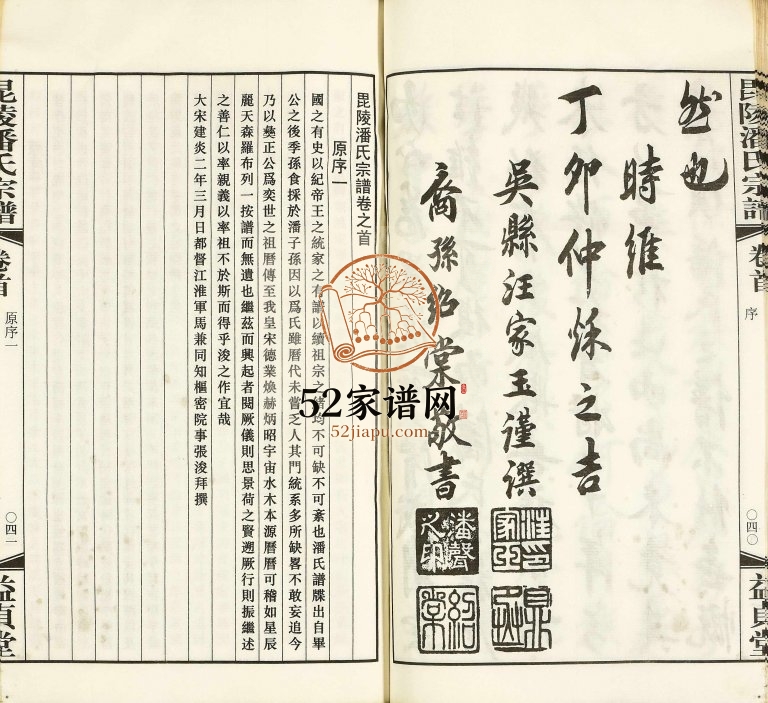 毘陵潘氏宗譜
卷首
序
〇四〇
益貞堂
然也
時維
丁卯仲秌之吉
吳縣汪家玉謹譔
裔孫紹棠敬書
潘聲之印
紹棠
汪家玉印
毘陵潘氏宗譜卷之首
原序一
國之有史以紀帝王之統家之有譜以續祖宗之緒均不可缺不可紊也潘氏譜牒出自畢
公之後季孫食採於潘子孫因以爲氏雖曆代未嘗乏人其門統系多所缺畧不敢妄追今
乃以㷫正公爲奕世之祖曆傳至我皇宋德業煥赫炳昭宇宙水木本源曆曆可稽如星辰
麗天森羅布列一按譜而無遺也繼茲而興起者閱厥儀則思景荷之賢遡厥行則振繼述
之善仁以率親義以率祖不於斯而得乎浚之作宜哉
大宋建炎二年三月日都督江淮軍馬兼同知樞密院事張浚拜撰
毘陵潘氏宗譜
卷首
原序一
〇四一
益貞堂
52家谱网
52jiapu.com